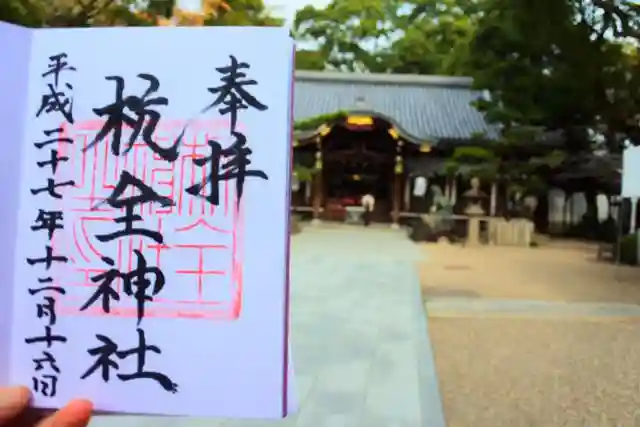 奉拝
杭全神社
平成二十七年十二月十六日